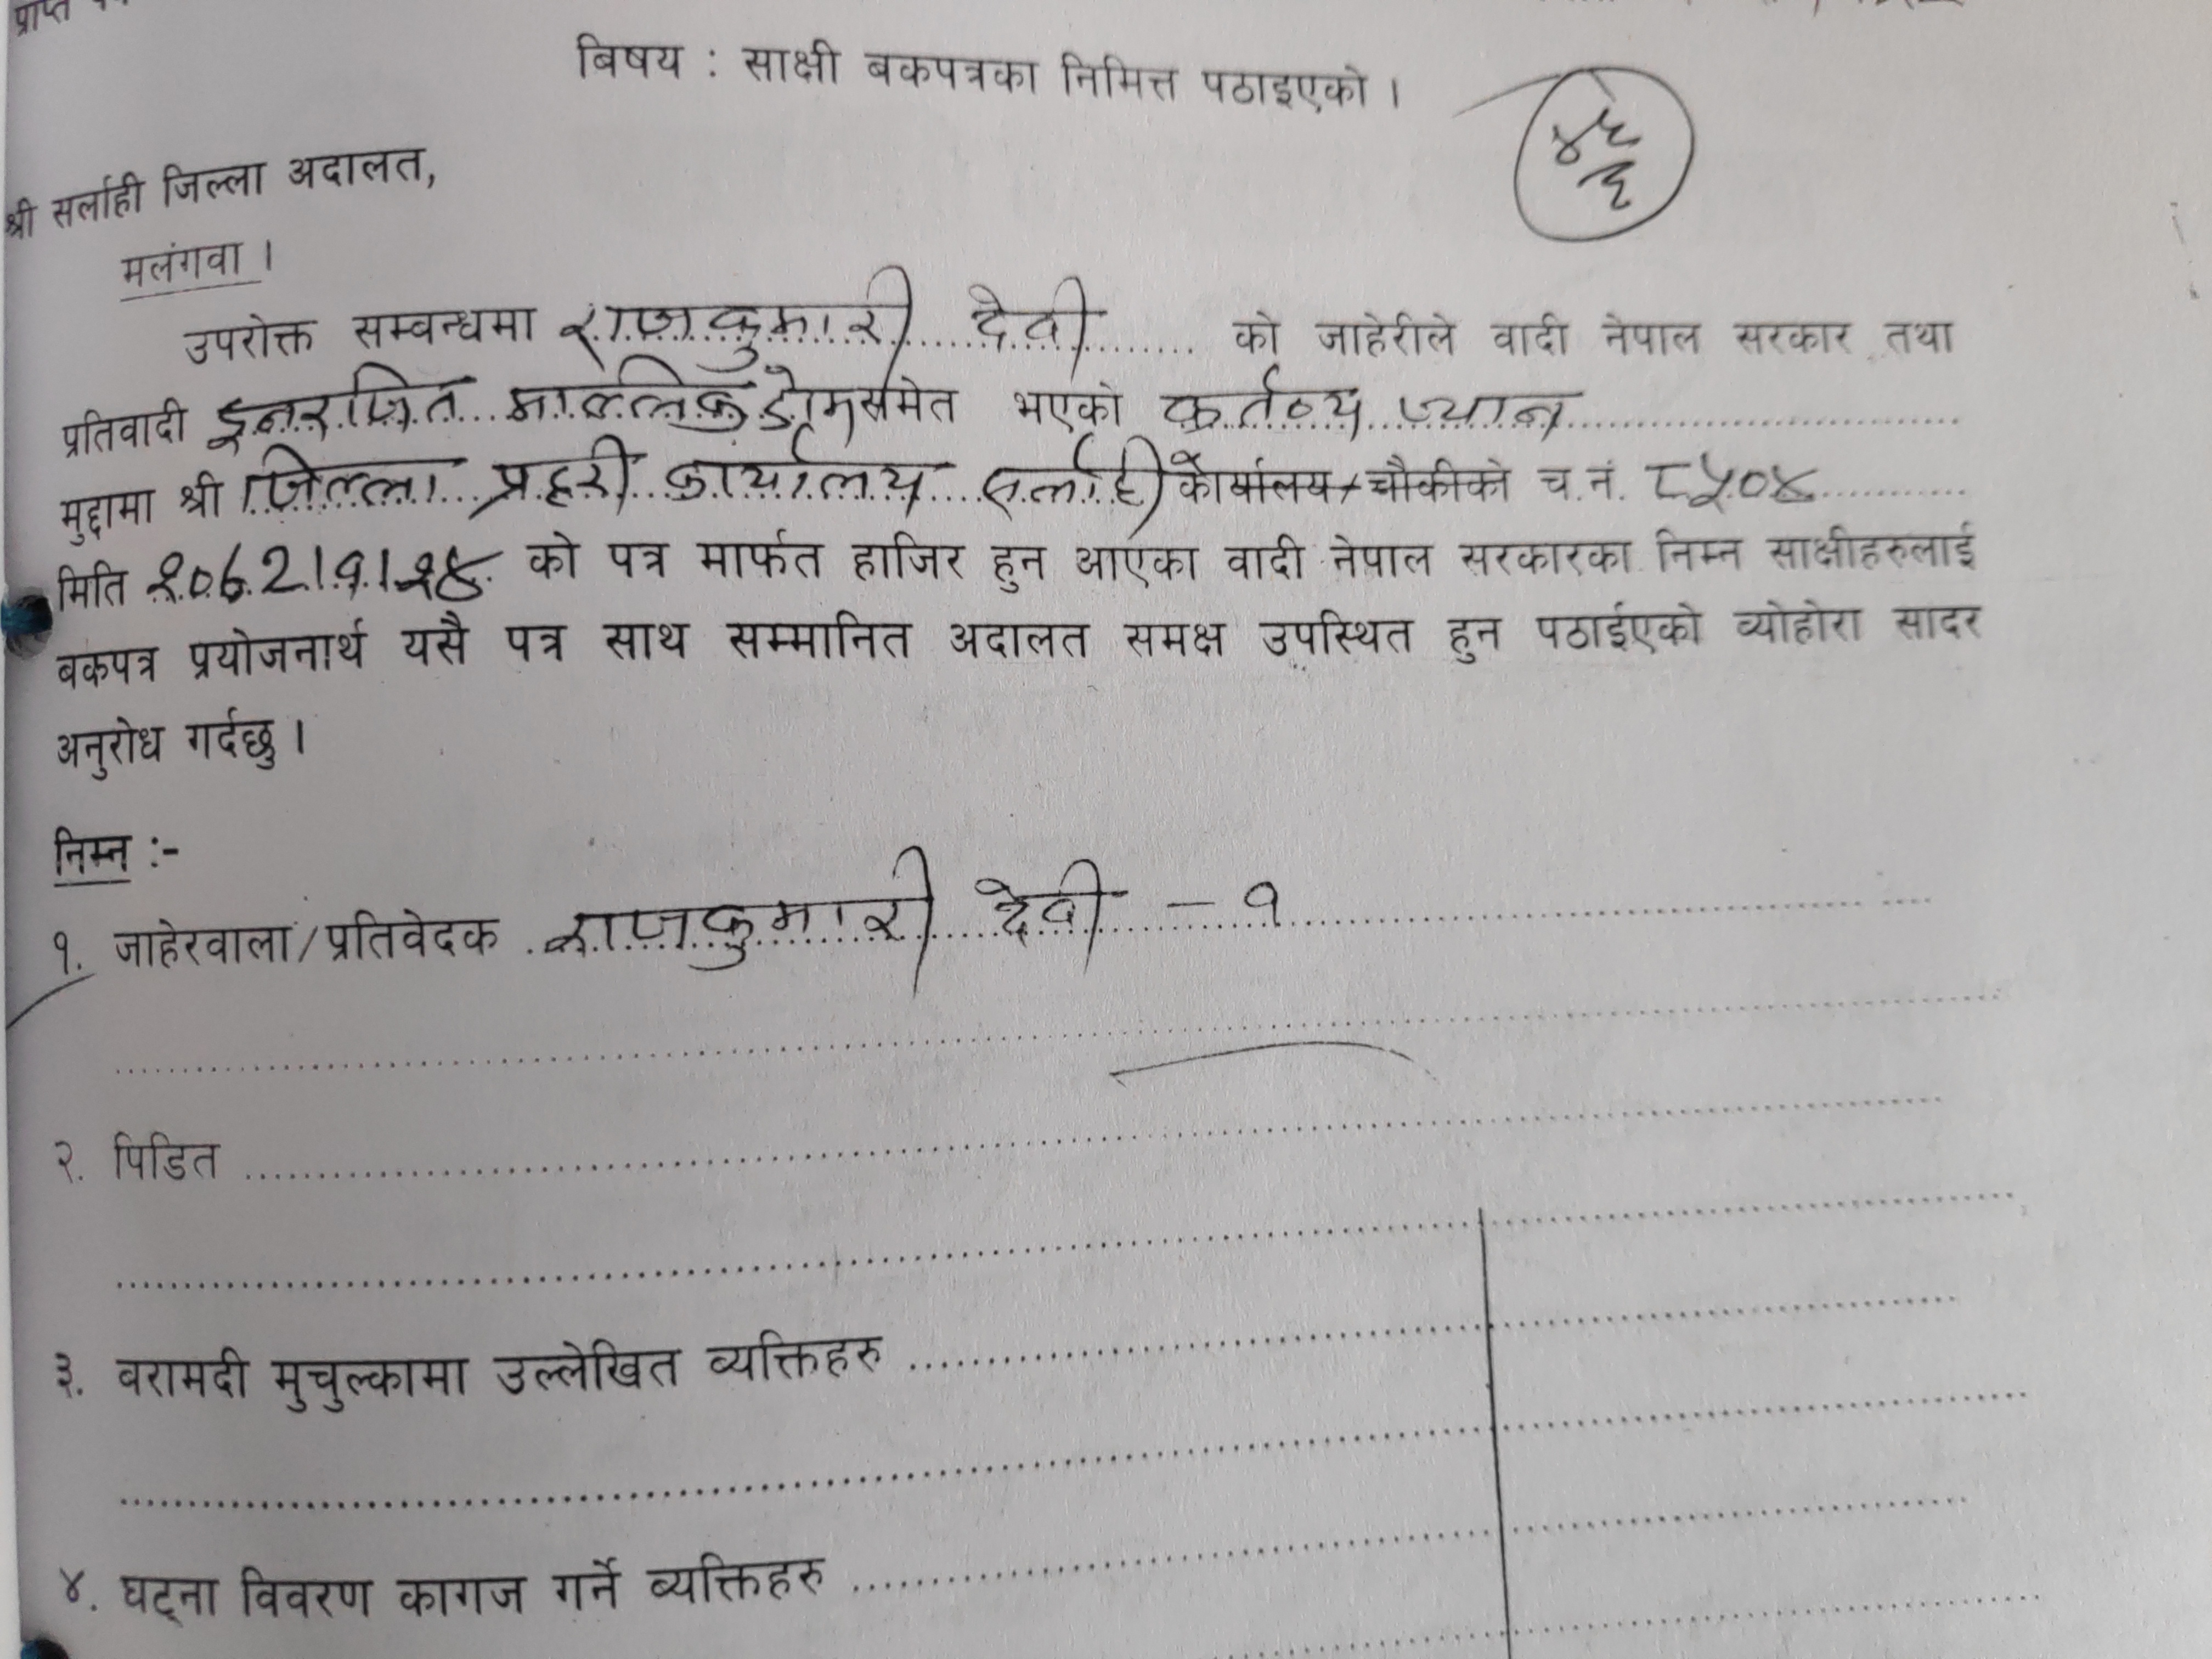 प्राप्त
बिषय : साक्षी बकपत्रका निमित्त पठाइएको ।
श्री सर्लाही जिल्ला अदालत,
मलंगवा ।
उपरोक्त सम्वन्धमा राजकुमारी देवी को जाहेरीले वादी नेपाल सरकार तथा
प्रतिवादी इनरजित माल्लिक डोमसमेत भएको कर्तव्य ज्यान
मुद्दामा श्री जिल्ला प्रहरी कार्यालय सर्लाही कार्यालय/चौकीको च.नं. ८५०४
मिति को पत्र मार्फत हाजिर हुन आएका वादी नेपाल सरकारका निम्न साक्षीहरुलाई
बकपत्र प्रयोजनार्थ यसै पत्र साथ सम्मानित अदालत समक्ष उपस्थित हुन पठाईएको व्योहोरा सादर
अनुरोध गर्दछु ।
निम्न :-
१. जाहेरवाला/प्रतिवेदक राजकुमारी देवी - १
२. पिडित
३. बरामदी मुचुल्कामा उल्लेखित व्यक्तिहरु
४. घट्ना विवरण कागज गर्ने व्यक्तिहरु